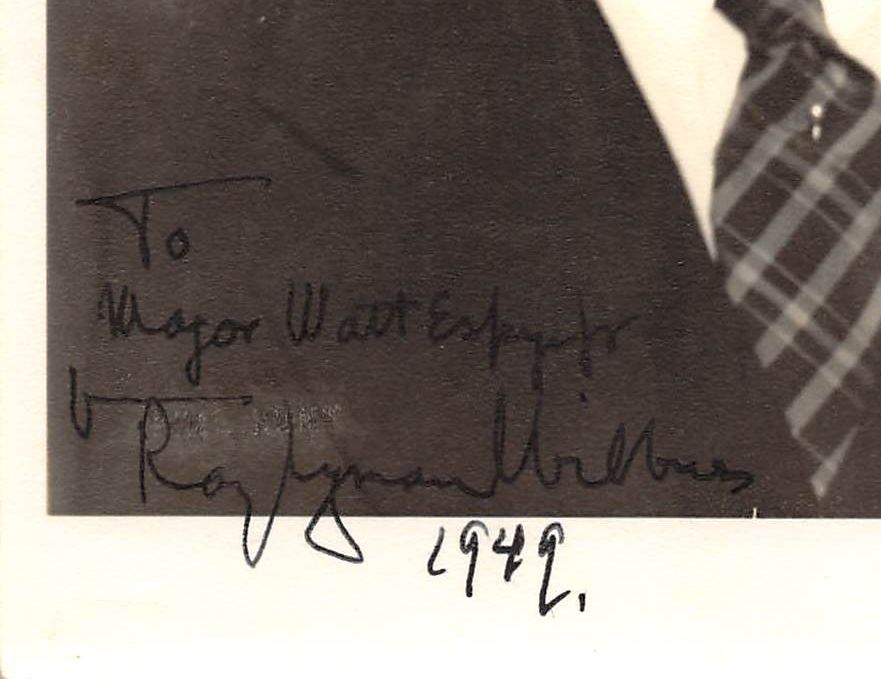 To
Major Watt Espy Jr
Ray Lyman Wilbur
1949.